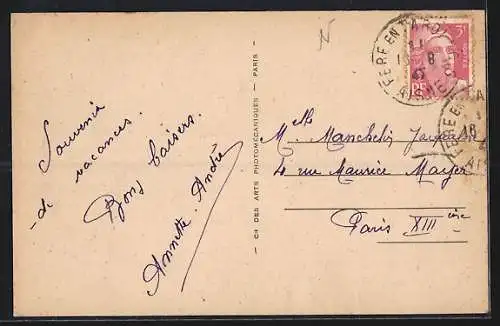 Souvenir
de vacances.
Bons baisers.
Annette. André
CH DES ARTS PHOTOMÉCANIQUES - PARIS
N
FERE EN TARD
18 8
AISNE
3F
FERE EN
18
Melle
M. Manchelin
4 rue Maurice Mayer
Paris XIII ième